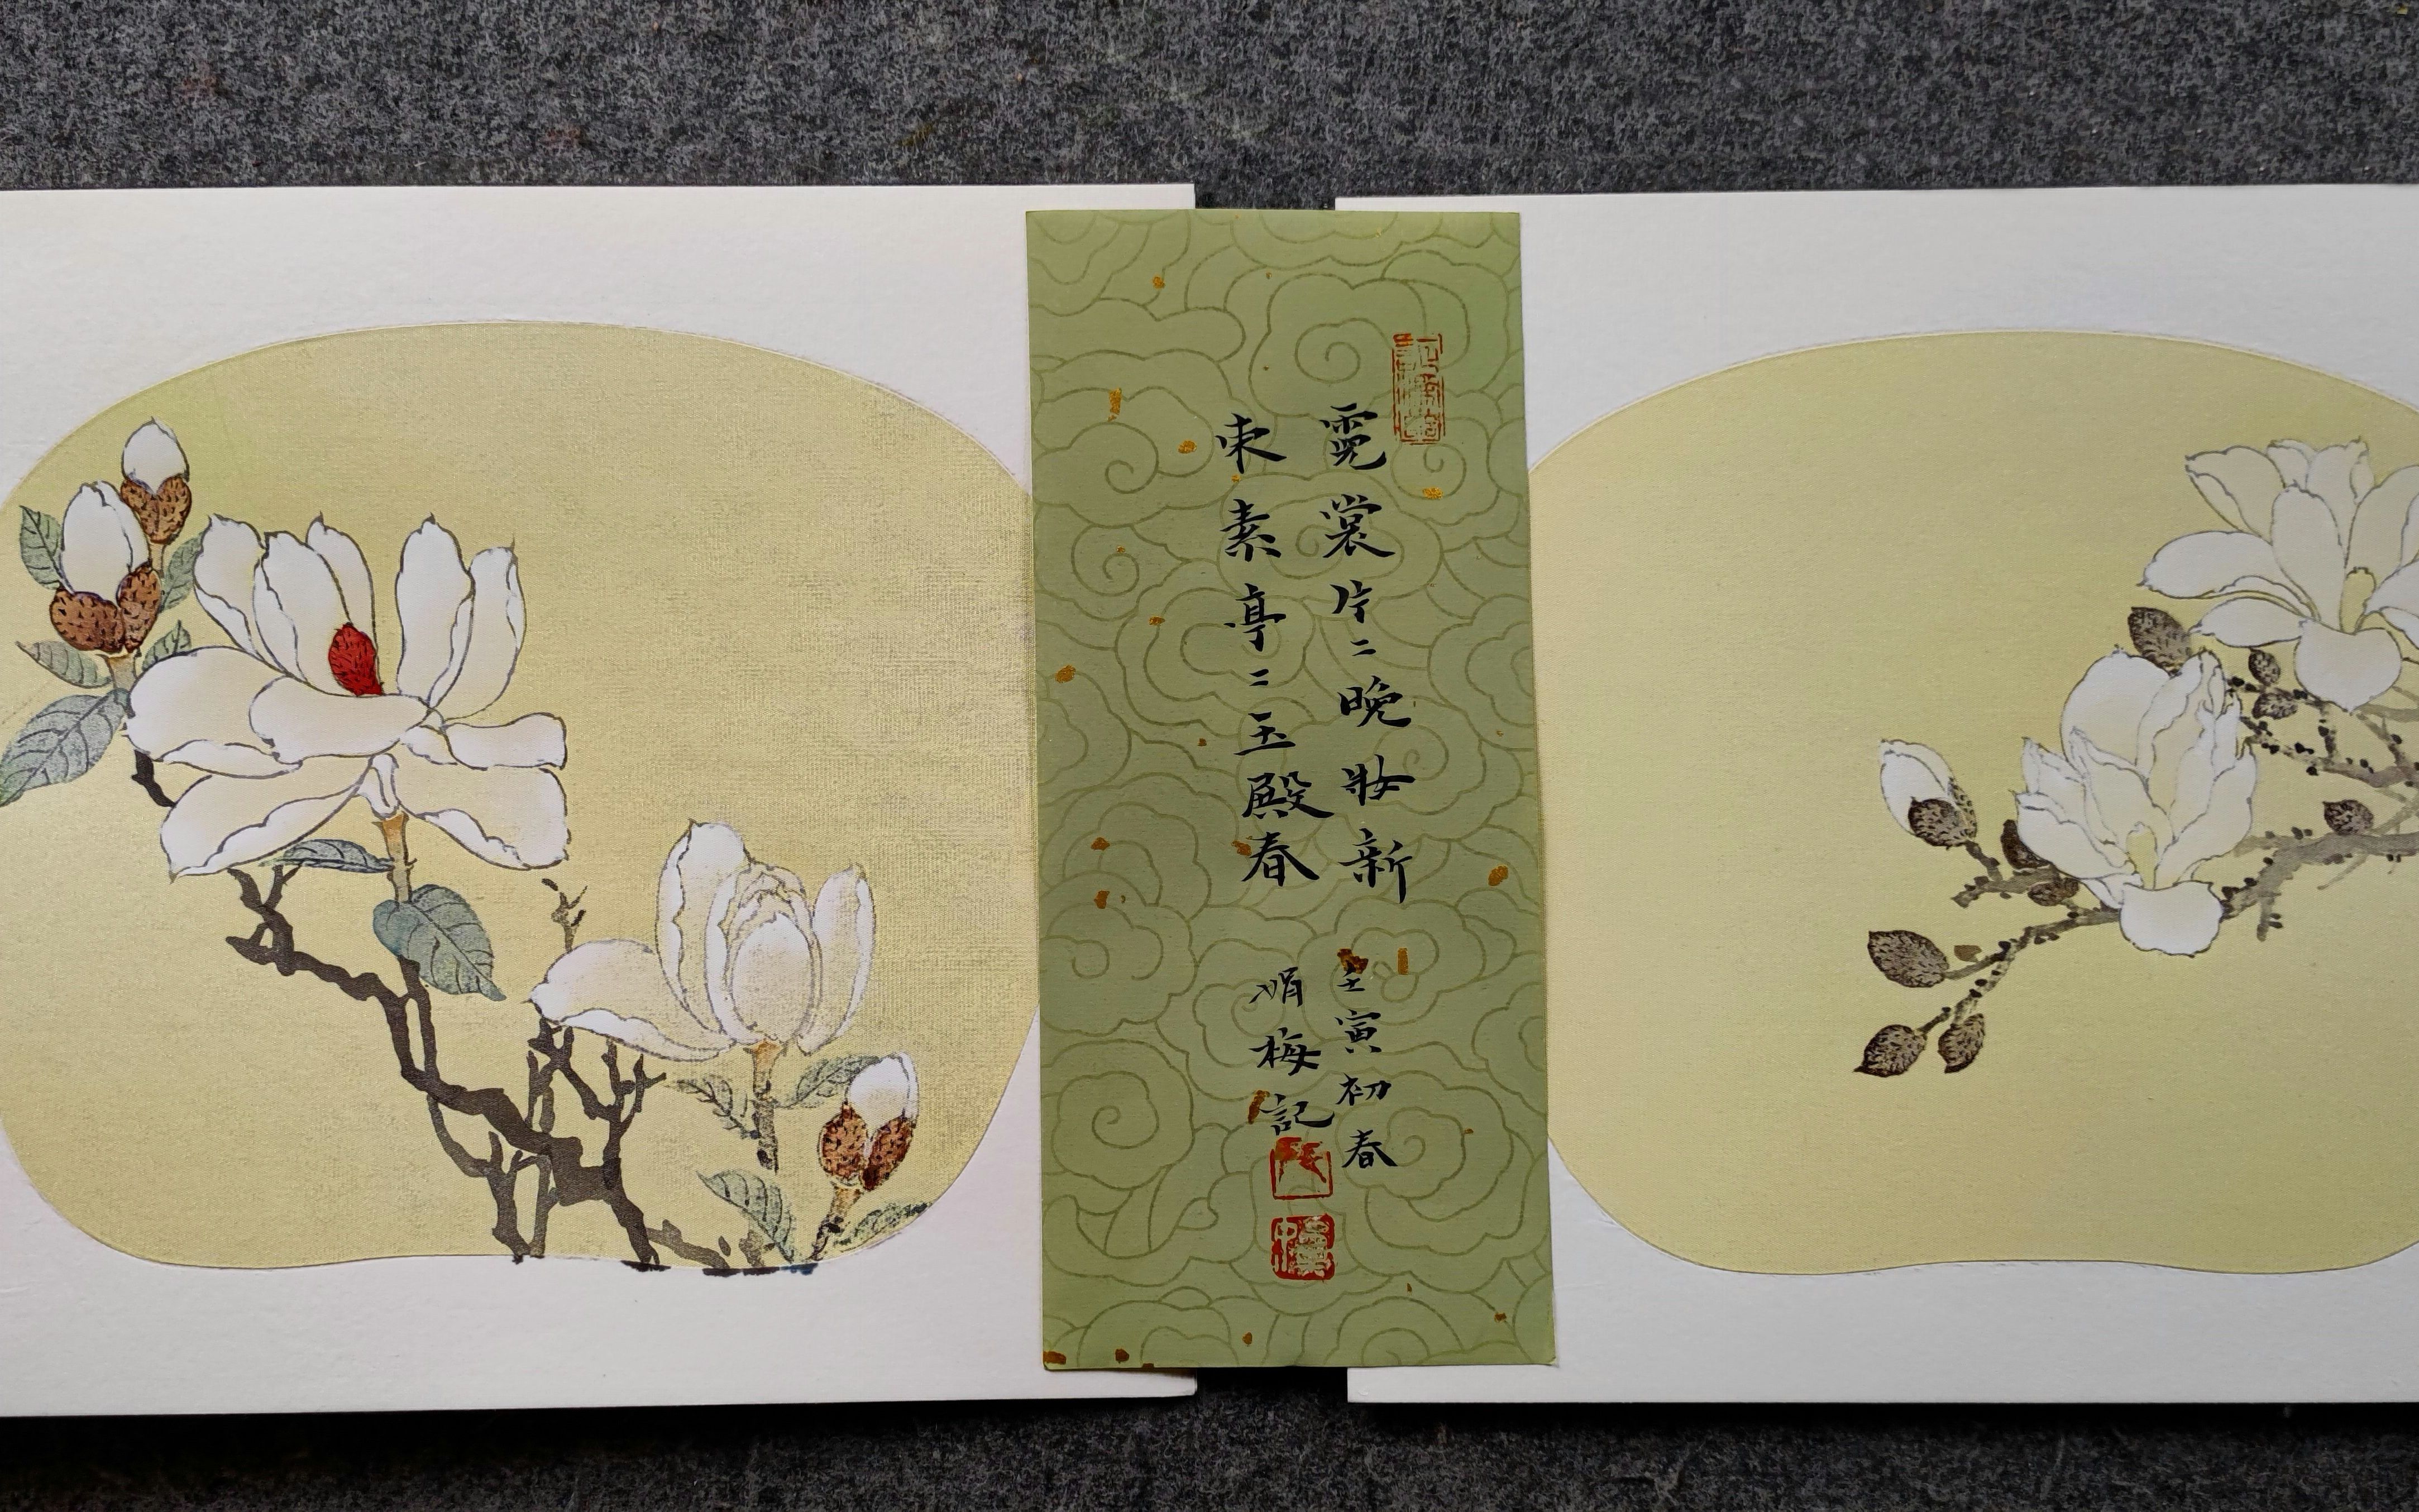 霓裳片〻晚妝新
束素亭〻玉殿春
壬寅初春
娟梅記